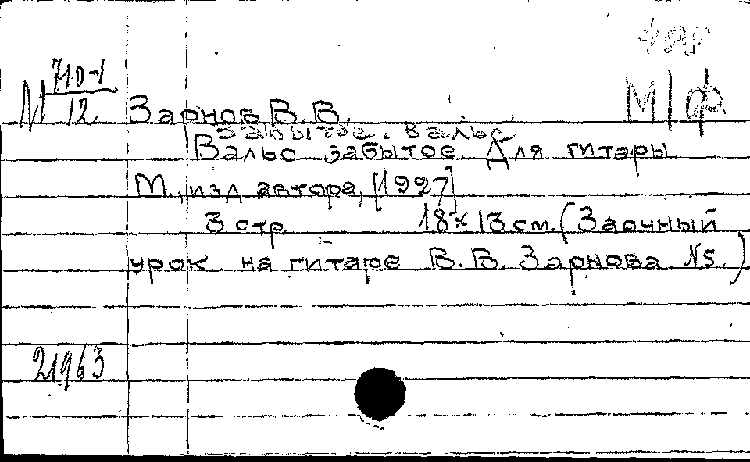 М 710-1
12
М|Ф
Зарнов В. В.
Забытое. Вальс
Вальс забытое. Для гитары
М., изд. автора, [1927]
3 стр. 18×13 см. (Заочный
урок на гитаре В. В. Зарнова №5.)
21963